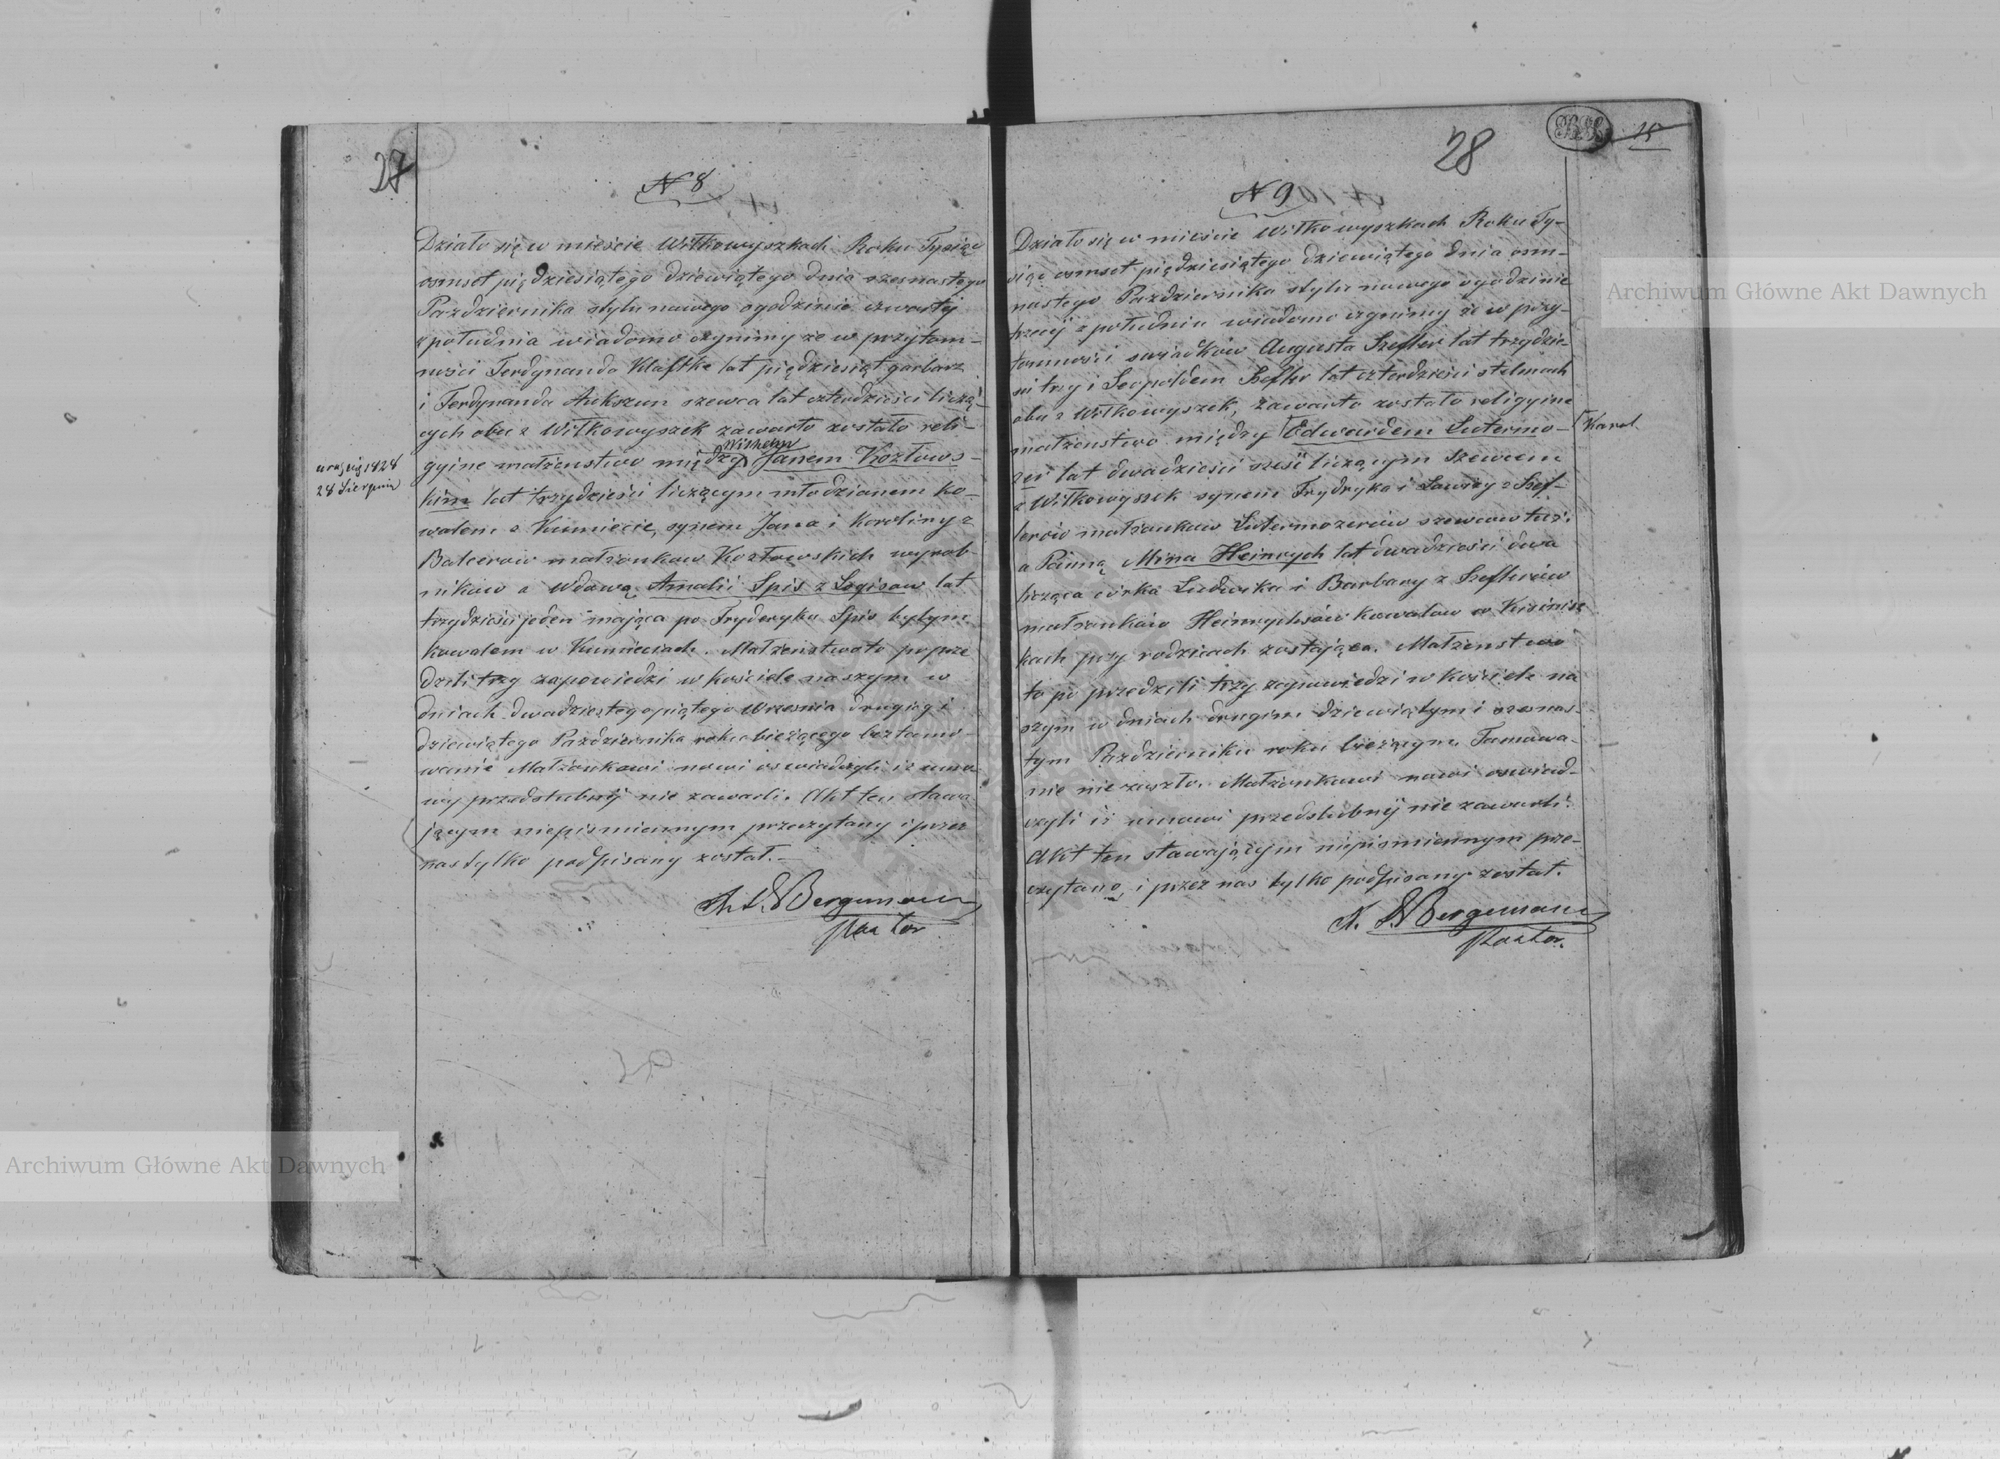 27
N 8
Działo się w mieście Wiłkowyszkach Roku Tysiąc
osmset piędziesiątego dziewiątego dnia szesnastego
Pazdziernika stylu nowego ogodzinie czwartej
z południa wiadomo czynimy ze w przytom-
ności Ferdynanda Klaftke lat pięćdziesiąt garbarz
i Ferdynanda szewca lat czterdzieści liczą-
cych obu z Wiłkowyszek zawarto zostało reli-
Wilhelm
gijne małżenstwo między Janem Kozłows-
urodz się 1828
28 Sierpnia
kim lat trzydzieści liczącym młodzianem ko-
walem z synem Jana i Karoliny z
Balcerów małżonkow Kozłowskich wyrob-
nikow a Wdową Amalii Spis z lat
trzydzieści jeden mająca po Fryderyku Spis byłym
kowalem w Małżenstwo to poprze
dzili trzy zapowiedzi w kościele naszym w
dniach dwadziestego piątego Wrzesnia drugiego i
dziewiątego Pazdziernika roku bieżącego beztamo-
wanie Małżonkowi nowi oswiadczyli iż umo-
wy przedslubnéj nie zawarli. Akt ten stawa
jącym niepismiennym przeczytany i przez
nas tylko podpisany został.-
Bergemann
Pastor
28
15
N 9
Działo się w miescie Wiłkowyszkach Roku Ty-
siąc osmset pięździesiątego dziewiątego dnia osm-
nastego Pazdziernika stylu nowego ogodzinie
trzeciej z południa wiadomo czynimy że w przy-
tomności swiadków Augusta Szefler lat trzydzie
sci trzy i Leopoldem Szefler lat czterdzieści stelmach
obu z Wiłkowyszek, zawarto zostało religijne
małżenstwo między Edwardem Lutermo-
Karol
zer lat dwadzieści sześć liczącym szewcem
z Wiłkowyszek synem Frydryka i z Szef-
lerów małżonkow Lutermozerów szewcow
a Panną Mina Heinrych lat dwadzieści dwa
licząca córka Ludwika i Barbary z Szeflerów
małżonków Heinrychsów kowalow w
kach przy rodzicach zostająca. Małżenstwo
to po przedzili trzy zapowiedzi w kościele na
szym w dniach drugim dziewiątym i szesnas-
tym Pazdziernika roku bieżącym. Tamowa-
nie nie zaszło. Małżonkowi nowi oswiad-
czyli iż umowi przedslubnéj nie zawarli
Akt ten stawającym niepismiennym prze-
czytano, i przez nas tylko podpisany został.
Bergemann
Pastor.
Archiwum Główne Akt Dawnych
Archiwum Główne Akt Dawnych